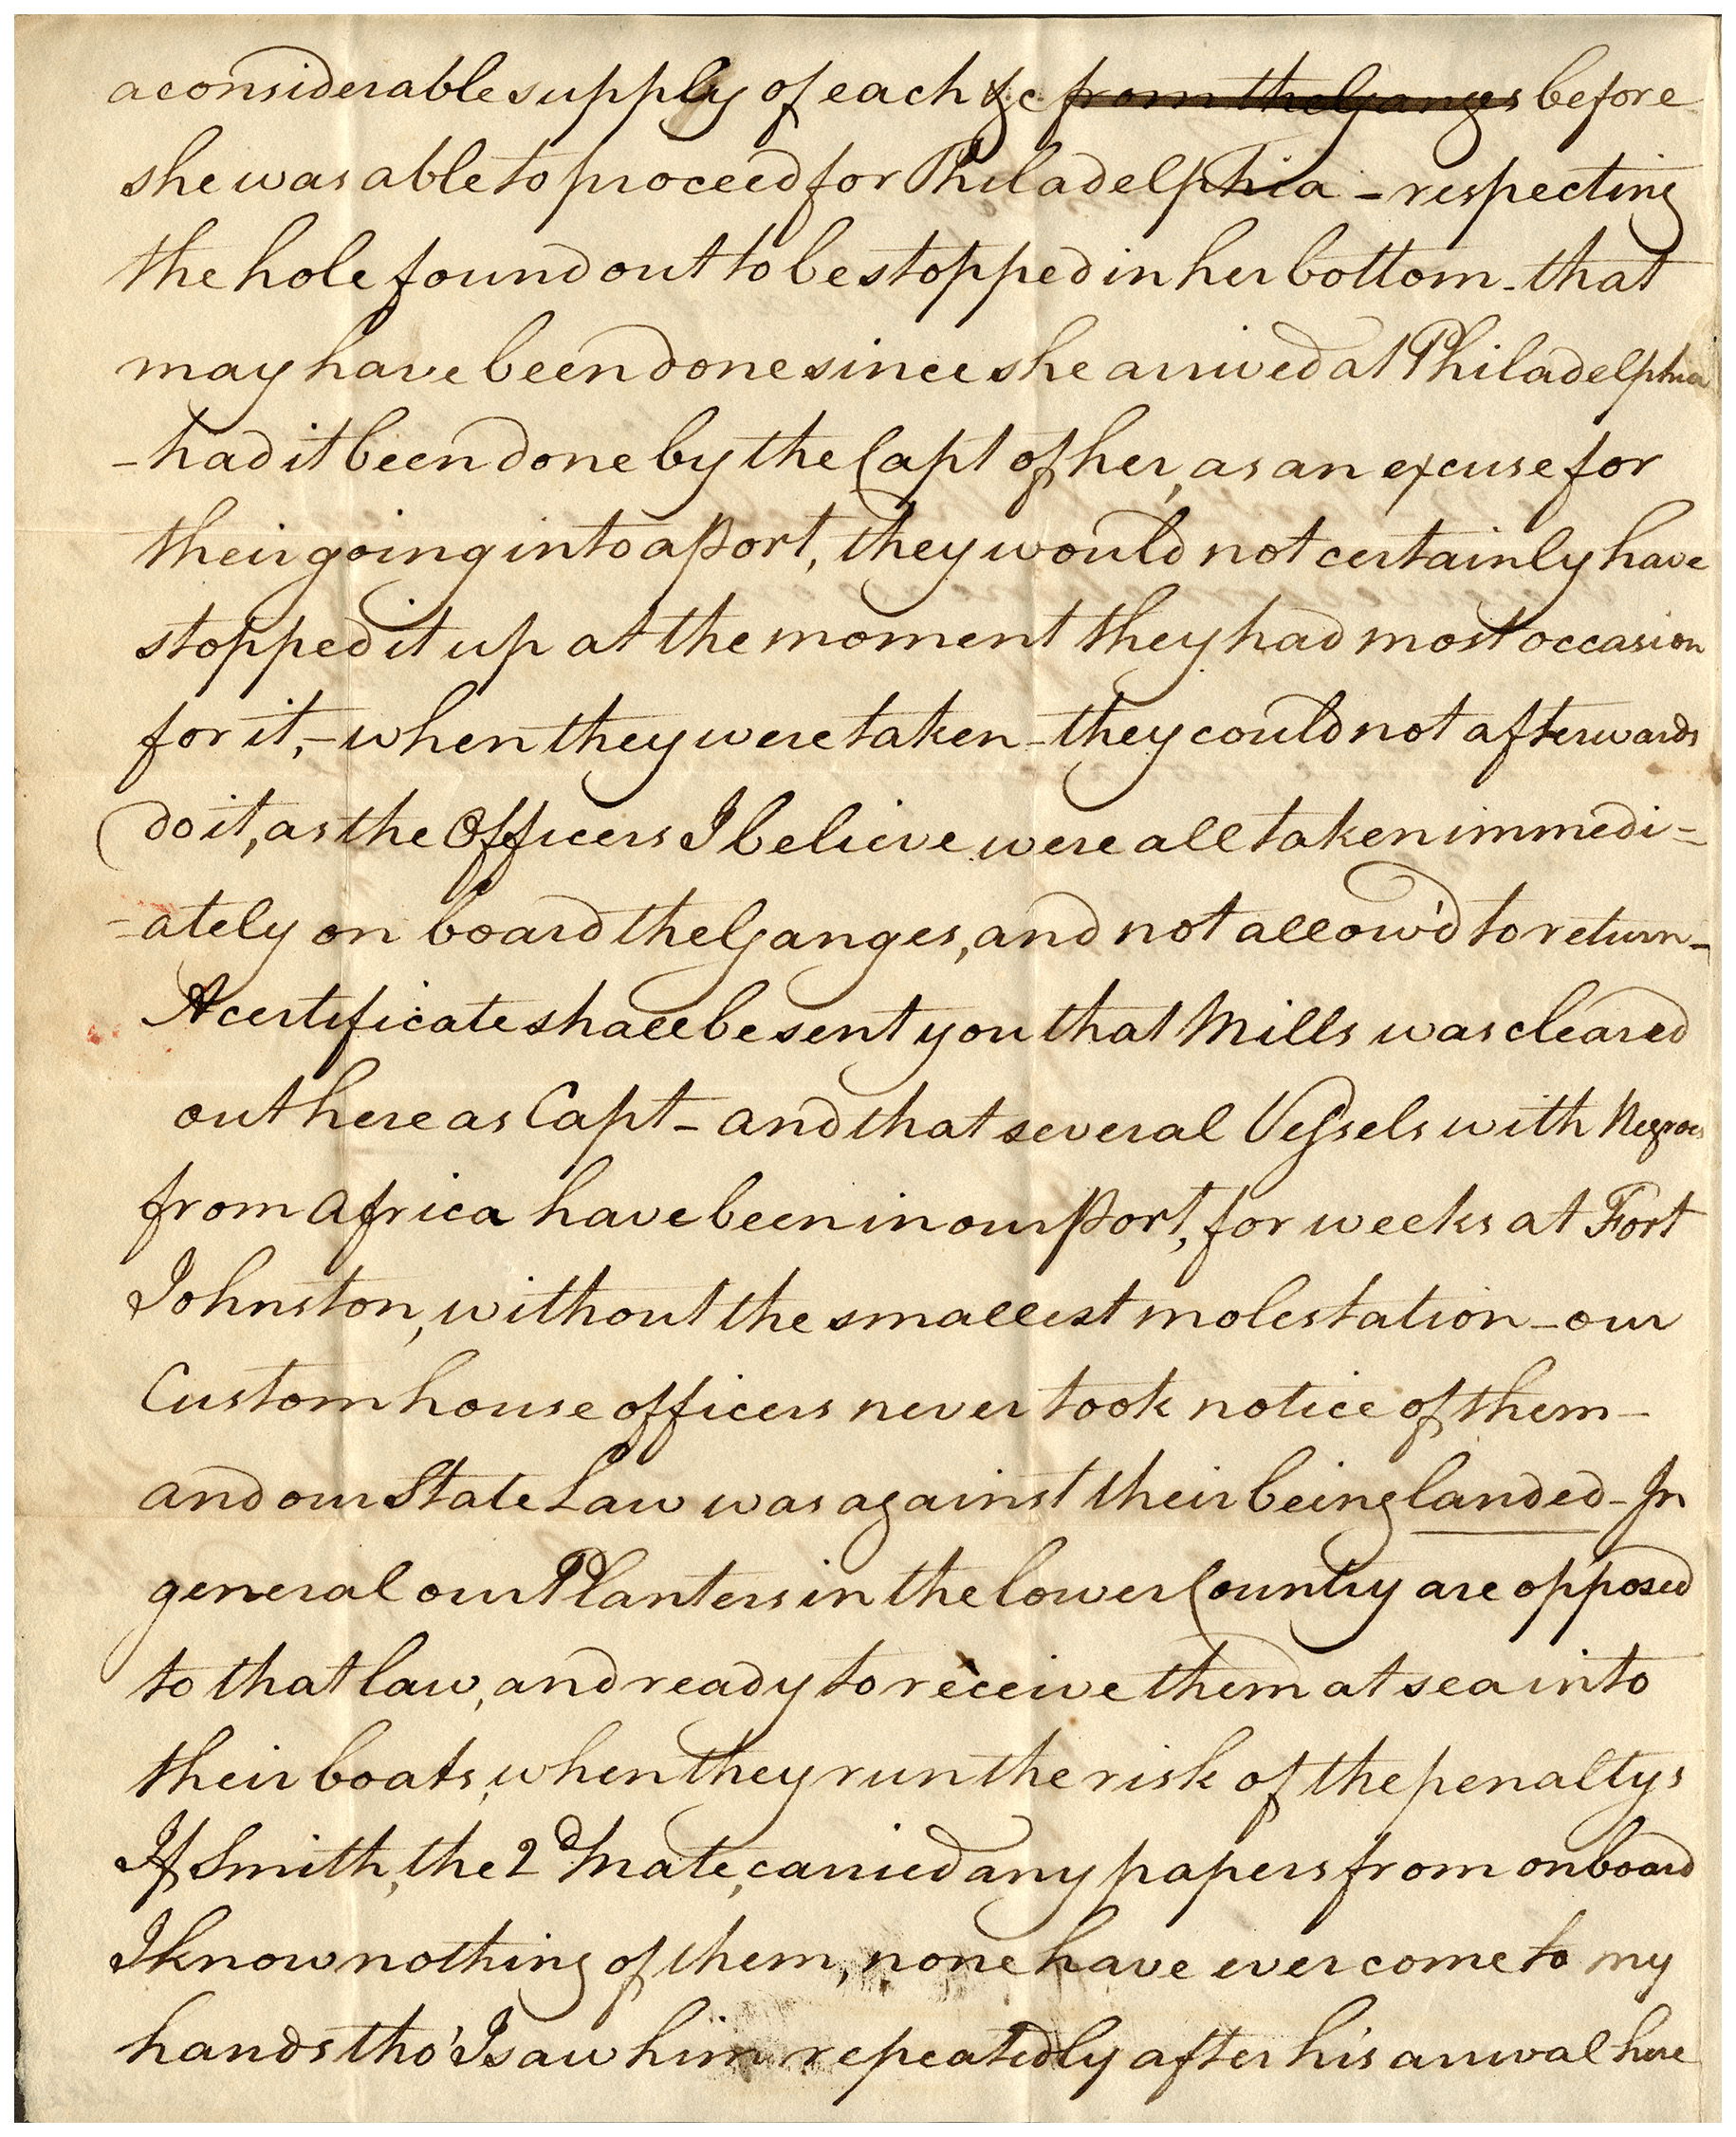 a considerable supply of each &c from the Ganges before
she was able to proceed for Philadelphia - respecting
the hole found out to be stopped in her bottom - that
may have been done since she arrived at Philadelphia
- had it been done by the Capt of her, as an excuse for
their going into a Port, they would not certainly have
stopped it up at the moment they had most occasion
for it, - when they were taken - they could not afterwards
do it, as the Officers I believe were all taken immedi=
-ately on board the Ganges, and not allow'd to return -
A certificate shall be sent you that Mills was cleared
out here as Capt - and that several Vessels with Negroes
from Africa have been in our Port, for weeks at Fort
Johnston, without the smallest molestation - our
Custom house officers never took notice of them -
and our State Law was against their being landed - In
general our Planters in the lower Country are opposed
to that law, and ready to receive them at sea into
their boats, when they run the risk of the penaltys
If Smith, the 2d Mate, carried any papers from on board
I know nothing of them, none have ever come to my
hands tho' I saw him repeatedly after his arrival here